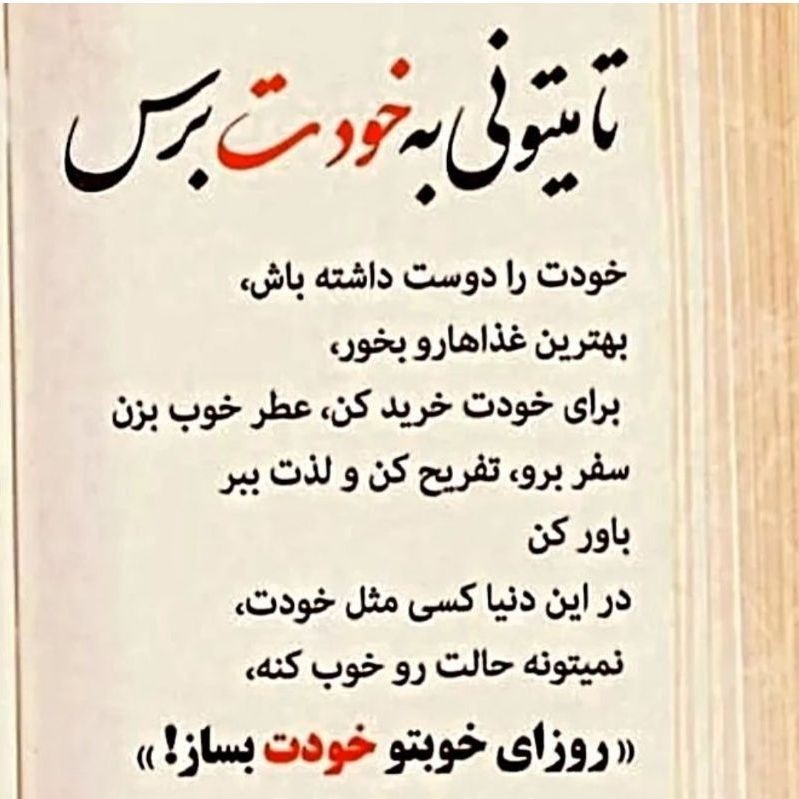 تا میتونی به خودت برس
خودت را دوست داشته باش،
بهترین غذاهارو بخور،
برای خودت خرید کن، عطر خوب بزن
سفر برو، تفریح کن و لذت ببر
باور کن
در این دنیا کسی مثل خودت،
نمیتونه حالت رو خوب کنه،
«روزای خوبتو خودت بساز!»